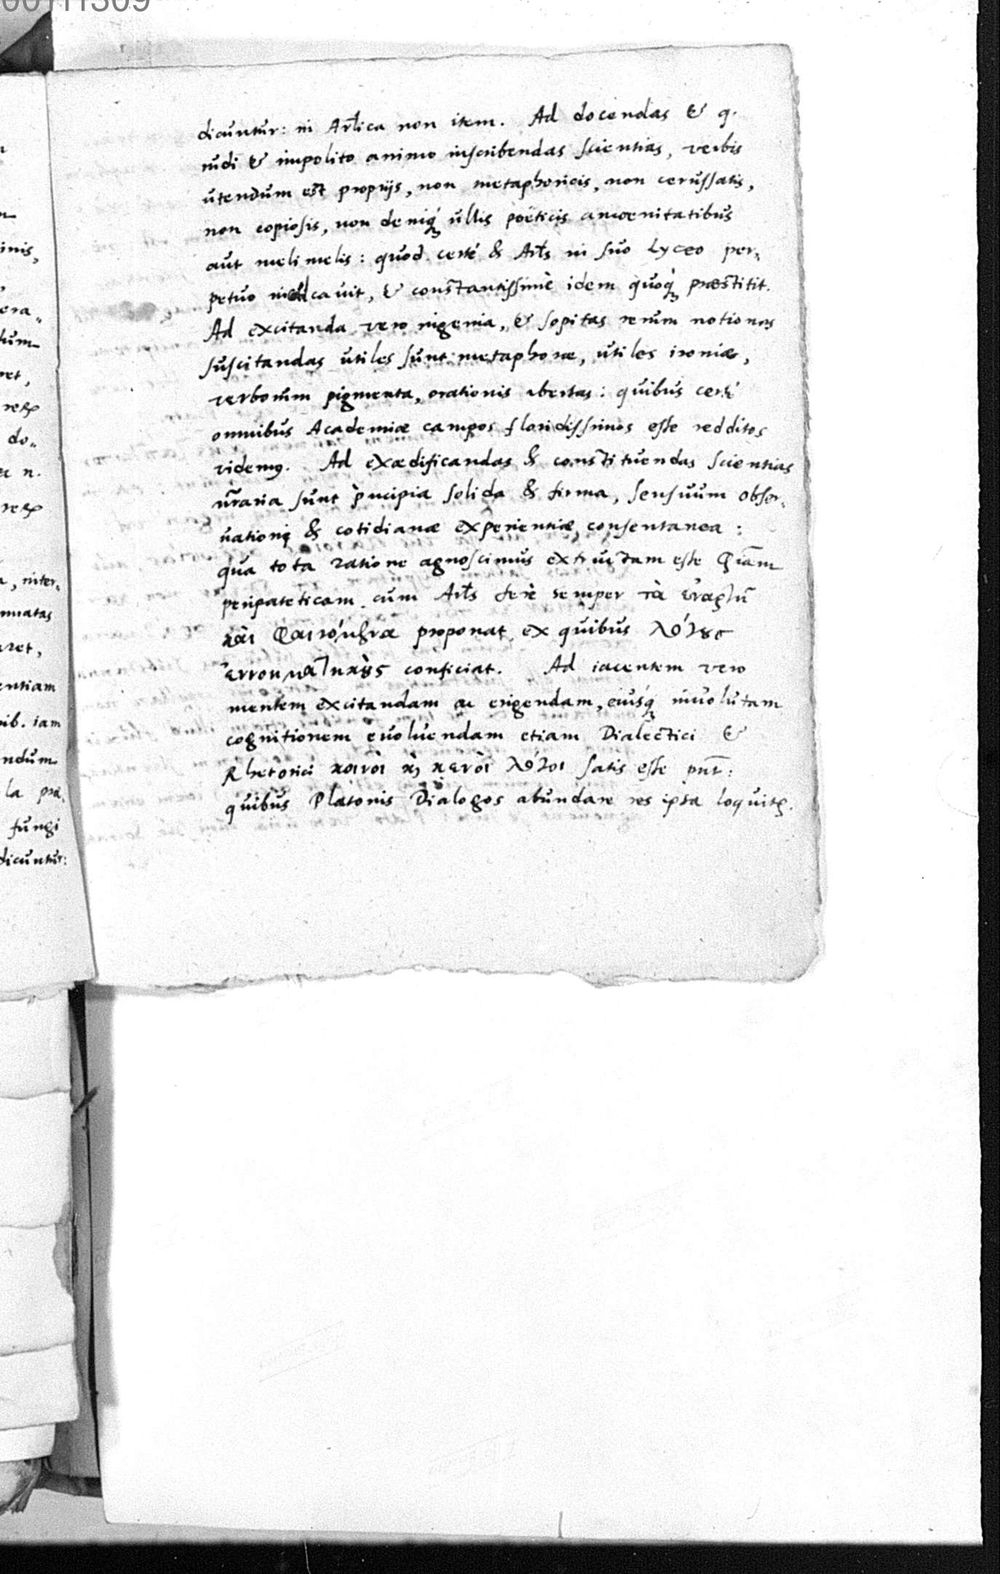 00711309
dicuntur: in Ar̄lica non item. Ad docendas & q.
rudi & impolito animo inscribendas scientias, verbis
utendum est proprijs, non metaphoricis, non cerussatis,
non copiosis, non deniq́ ullis poëticis amoenitatibus
aut melimelis: quod certè & Ar̄ls in suo Lyceo per„
petuo, & constantissimè idem quoq́ præstitit.
Ad excitanda vero ingenia, & sopitas rerum notiones
suscitandas utiles sunt metaphoræ, utiles ironiæ,
verborum pigmenta, orationis ubertas: quibus certè
omnibus Academiæ campos floridissimos esse redditos
videmꝰ. Ad exædificandas & constituendas scientias
nr̄aria sunt p̀ncipia solida & firma, sensuum obser„
uationi & cotidianæ experientiæ, consentanea:
qua tota ratione agnoscimus extructam esse
peripateticam. cum Ar̄ls ferè semper τὰ ἐναργῆ
καὶ φαινόμενα proponat, ex quibus λόγȣς
conficiat. Ad iacentem vero
mentem excitandam ac erigendam, eiusq́ inuolutam
cognitionem euoluendam etiam Dialectici &
Rhetorici κοινοὶ κ̀ κενοὶ λόγοι satis esse pn̄t:
quibus Platonis Dialogos abundare res ipsa loquitꝫ.
inis,
era„
tum
ret,
do„
a n.
a, inter„
muatas
aret,
entiam
ib. iam
ndum
la præ„
fungi
dicuntur: